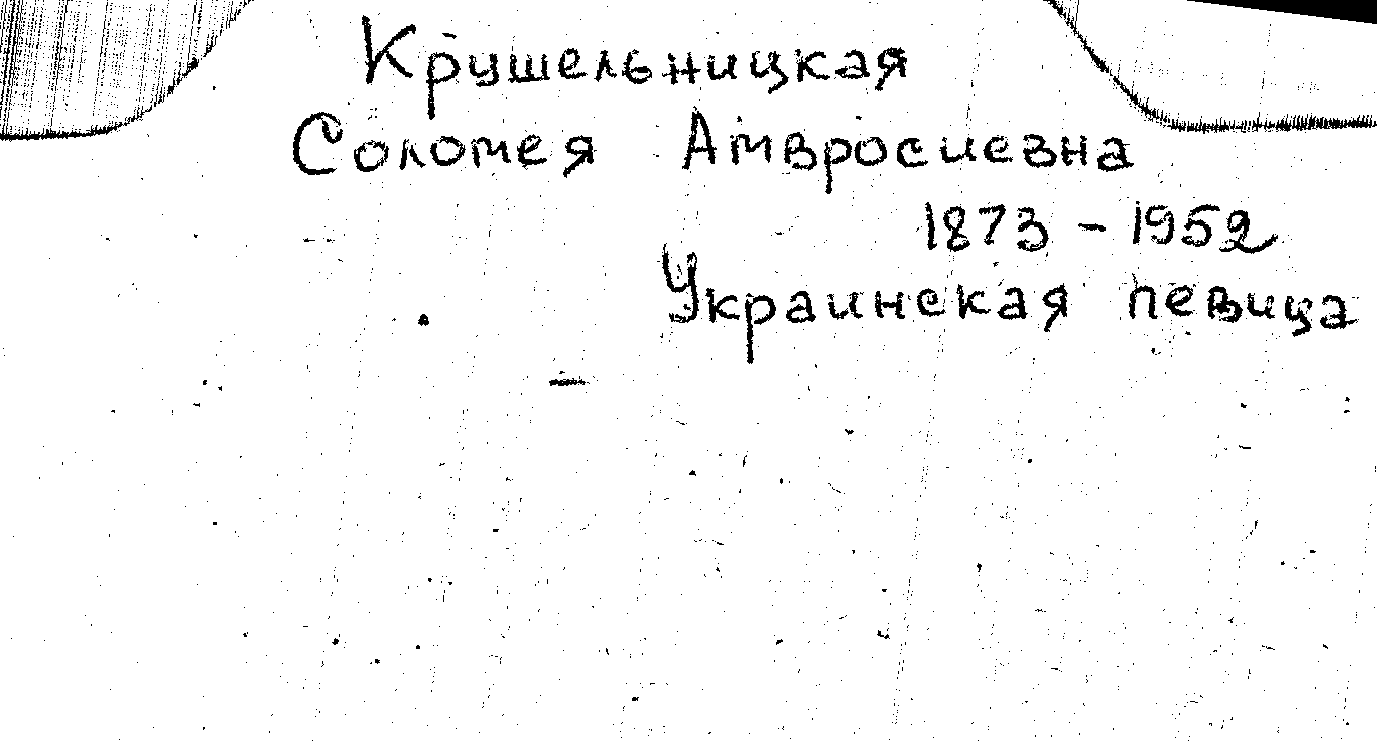 Крушельницкая
Соломея Амвросиевна
1873 - 1952
Украинская певица